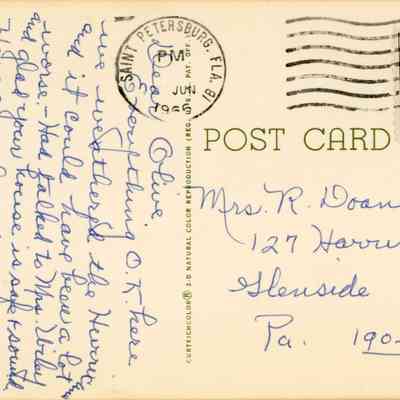 SAINT PETERSBURG, FLA. B1
PM
JUN
1966
POST CARD
Dear Olive
Everything O.K. here
we weathered the Hurric
and it could have been a lot
worse. - Had talked to Mrs.
and glad your house is safe + sound
Mrs. R. Doan
127
Glenside
Pa. 190
CURTEICHCOLOR® 3-D NATURAL COLOR REPRODUCTION (REG. U.S.A. PAT. OFF.)